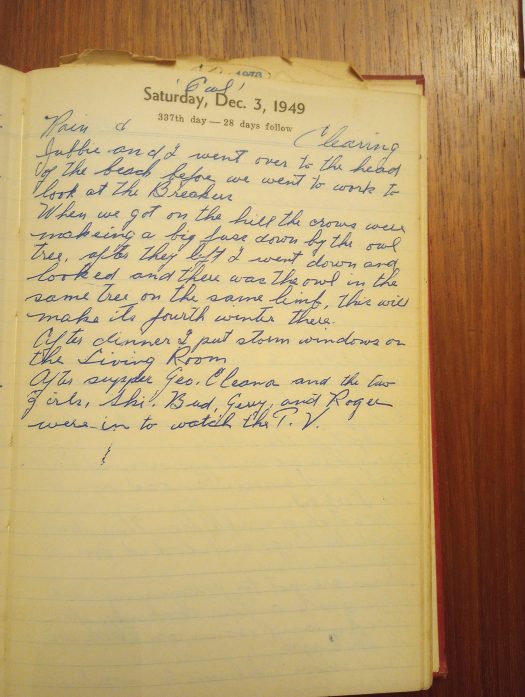 'Owl'
Saturday, Dec. 3, 1949
337th day — 28 days follow
Rain & Clearing
and I went over to the head
of the beach before we went to work to
look at the Breakers
When we got on the hill the crows were
makeing a big fuss down by the owl
tree, after they left I went down and
looked and there was the owl in the
same tree on the same limb, this will
make its fourth winter there.
After dinner I put storm windows on
the Living Room
After supper Geo, Eleana and the two
girls, Ski, Bud, Gerry, and Roger
were in to watch the T.V.